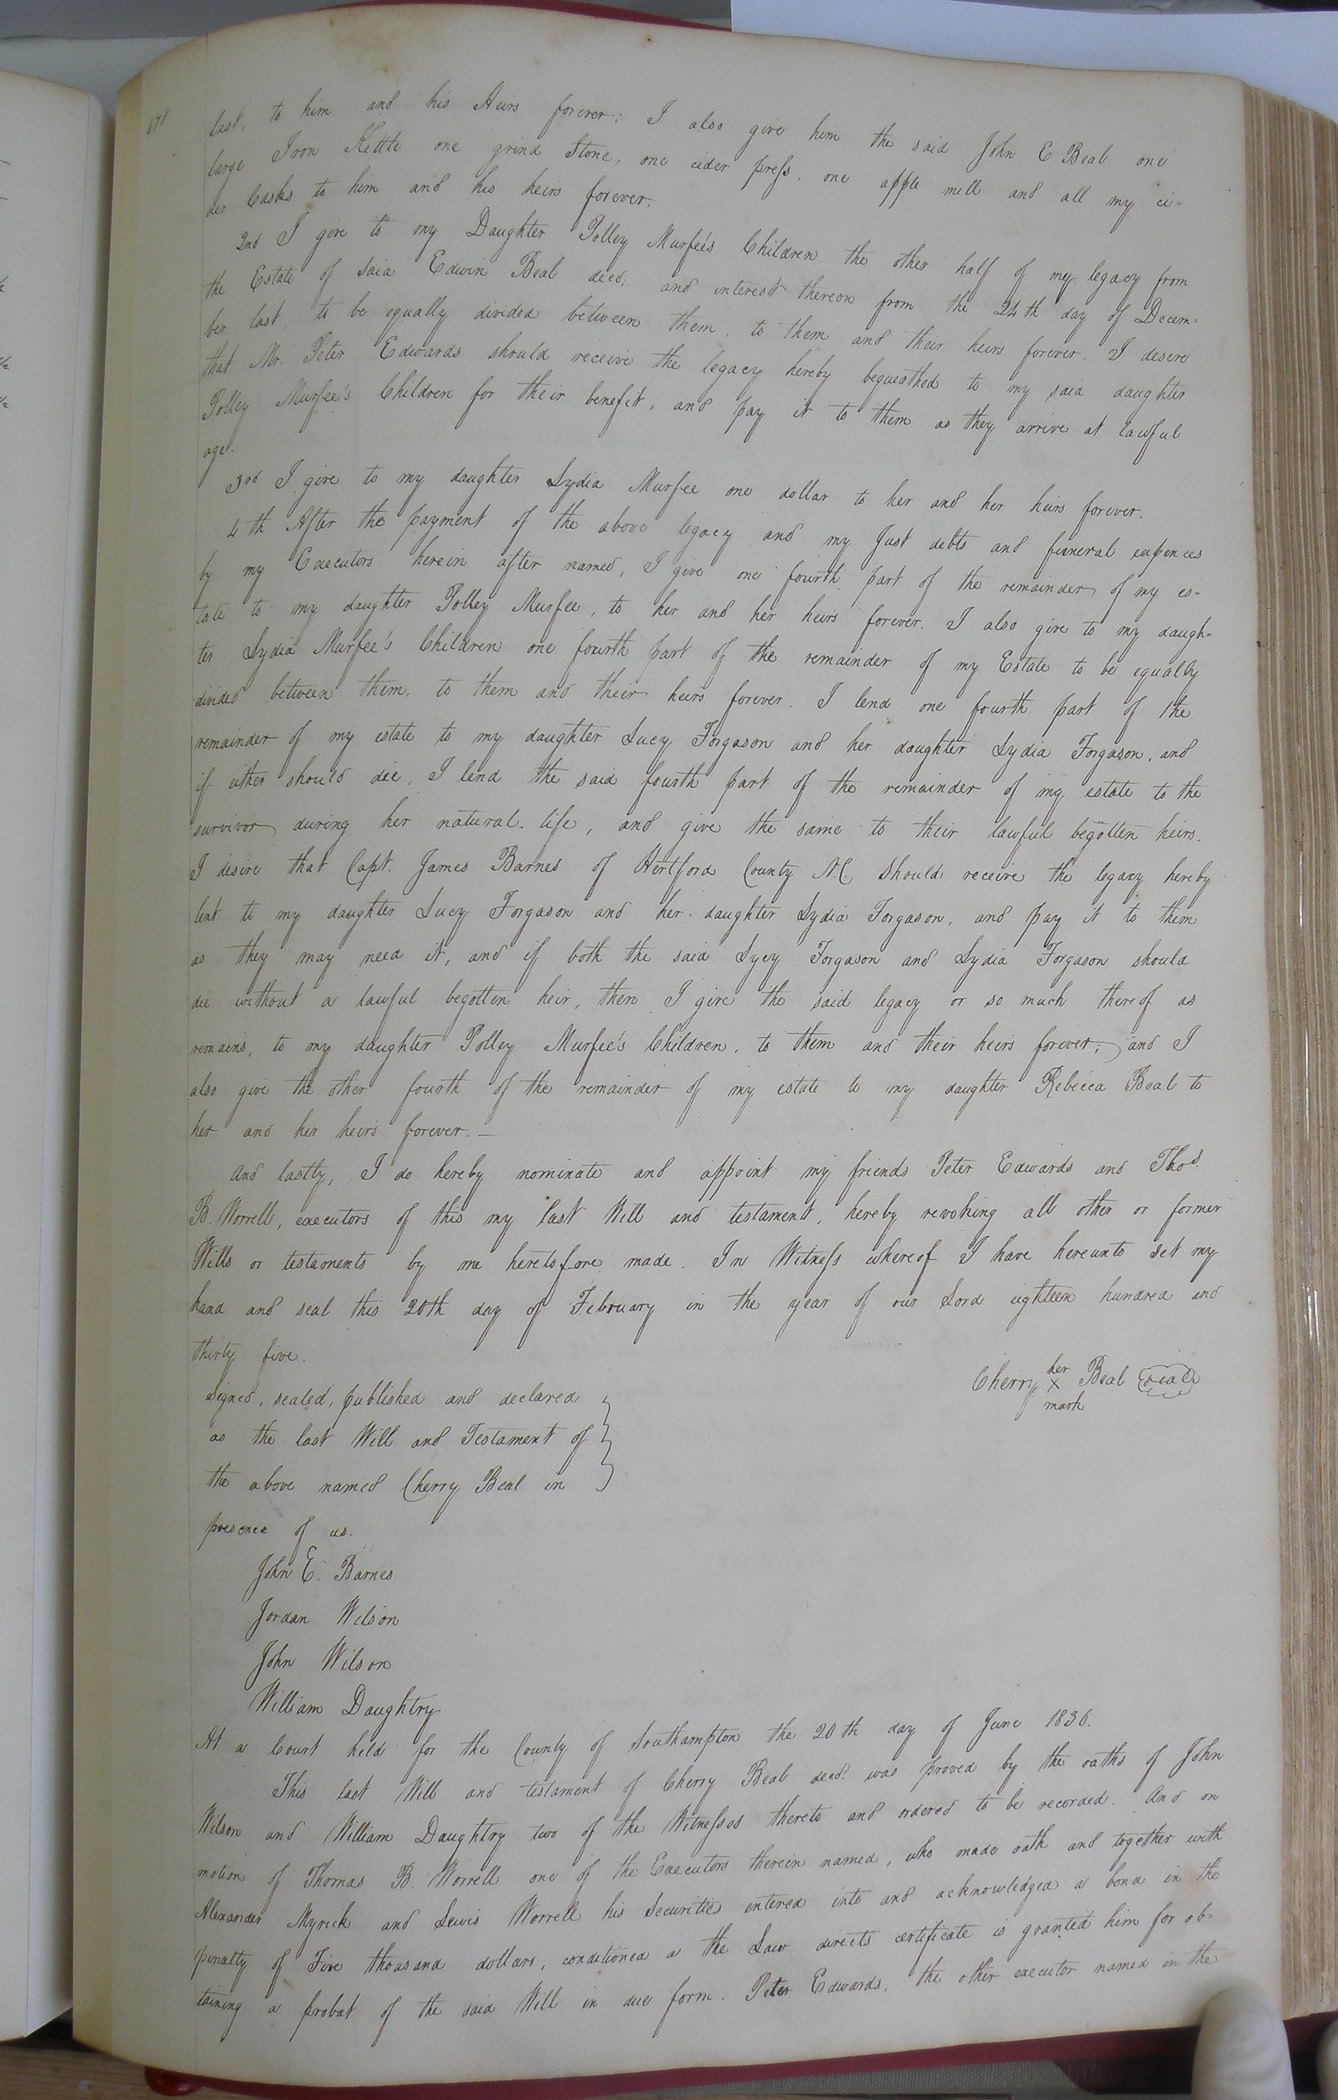 171
last, to him and his Heirs forever; I also give him the said John E Beal one
large Iron Kettle one grind Stone, one cider press. one apple mill and all my ci-
der Casks to him and his heirs forever.
2nd I give to my Daughter Polley Murfee's Children the other half of my legacy from
the Estate of said Edwin Beal decd; and interest thereon from the 24th day of Decem-
ber last to be equally divided between them, to them and their heirs forever. I desire
that Mr. Peter Edwards should receive the legacy hereby bequeathed to my said daughter
Polley Murfee's Children for their benefit, and pay it to them as they arrive at lawful
age.
3rd I give to my daughter Lydia Murfee one dollar to her and her heirs forever.
4th After the payment of the above legacy and my just debts and funeral expences
by my Executors herein after named, I give one fourth part of the remainder of my es-
tate to my daughter Polley Murfee, to her and her heirs forever. I also give to my daugh-
ter Lydia Murfee's Children one fourth part of the remainder of my Estate to be equally
divided between them, to them and their heirs forever. I lend one fourth part of the
remainder of my estate to my daughter Lucy Forgason and her daughter Lydia Forgason, and
if either should die, I lend the said fourth part of the remainder of my estate to the
survivor during her natural life, and give the same to their lawful begotten heirs.
I desire that Capt. James Barnes of Hertford County N.C. should receive the legacy hereby
lent to my daughter Lucy Forgason and her daughter Lydia Forgason, and pay it to them
as they may need it, and if both the said Lycy Forgason and Lydia Forgason should
die without a lawful begotten heir, then I give the said legacy or so much thereof as
remains, to my daughter Polley Murfee's Children, to them and their heirs forever; and I
also give the other fourth of the remainder of my estate to my daughter Rebecca Beal to
her and her heirs forever.—
And lastly, I do hereby nominate and appoint my friends Peter Edwards and Thos.
B. Worrell, executors of this my last Will and testament, hereby revoking all other or former
Wills or testaments by me heretofore made. In Witness whereof I have hereunto set my
hand and seal this 20th day of February in the year of our Lord eighteen hundred and
thirty five.
Cherry her X mark Beal seal
Signed, sealed, published and declared
as the last Will and Testament of
the above named Cherry Beal in
presence of us.
John E. Barnes
Jordan Wilson
John Wilson
William Daughtry
At a Court held for the County of Southampton the 20th day of June 1836.
This last Will and testament of Cherry Beal decd. was proved by the oaths of John
Wilson and William Daughtry two of the Witnesses thereto and ordered to be recorded. And on
motion of Thomas B. Worrell one of the Executors therein named, who made oath and together with
Alexander Myrick and Lewis Worrell his Securities entered into and acknowledged a bond in the
penalty of Five thousand dollars, conditioned a the Law directs certificate is granted him for ob-
taining a probat of the said Will in due form. Peter Edwards, the other executor named in the